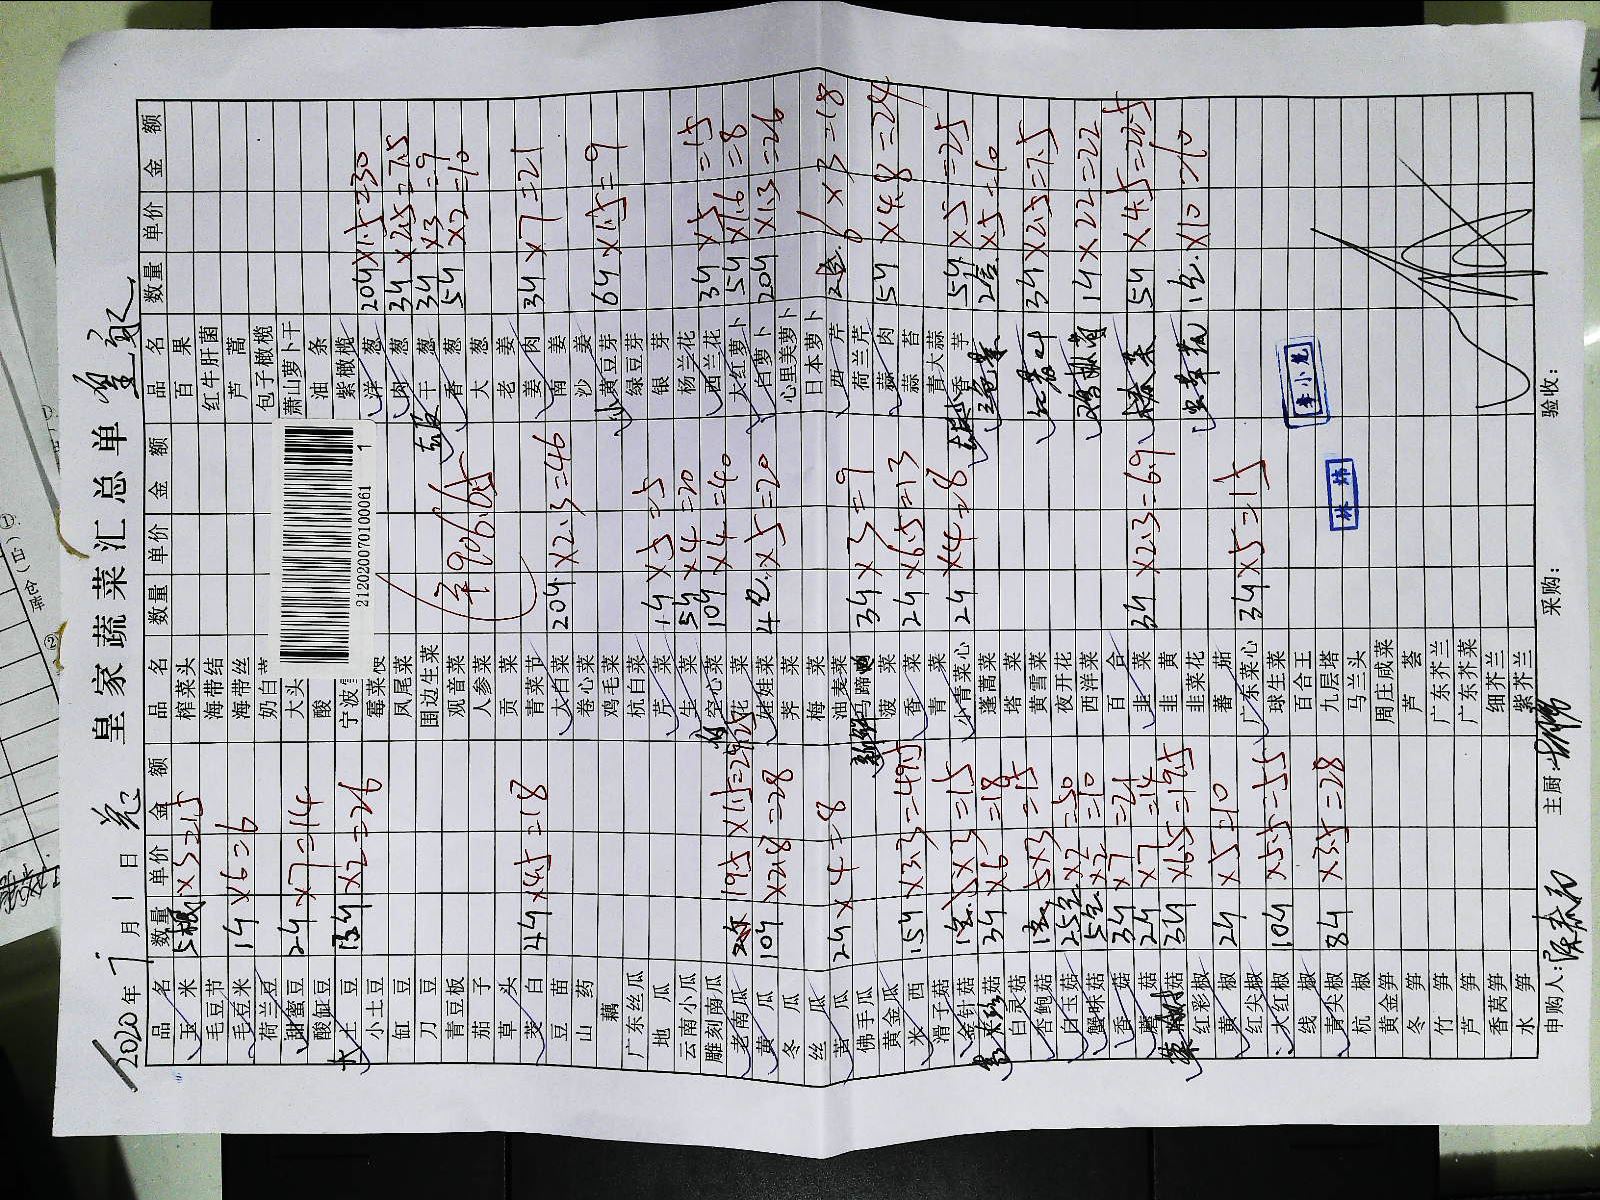 皇家蔬菜汇总单
2020年7月1日
品名 数量 单价 金额
玉米 5根 ×3=15
毛豆节
毛豆米 1斤 ×6=6
荷兰豆
甜蜜豆 2斤 ×7=14
酸缸豆
大土豆 13斤 ×2=26
小土豆
缸豆
刀豆
青豆板
茄子
草头
茭白 4斤 ×4.5=18
豆苗
山药
藕
广东丝瓜
地瓜
云南小瓜
雕刻南瓜
老南瓜 19.5 ×1.5=29.25
黄瓜 10斤 ×2.8=28
冬瓜
丝瓜
苦瓜 2斤 ×4=8
佛手瓜
黄金瓜
米西 15斤 ×3.3=49.5
滑子菇
金针菇 ×3=15
3斤 ×6=18
白灵菇
杏鲍菇 5×3=15
白玉菇 25包 ×2=50
蟹味菇 5包 ×2=10
香菇 3斤 ×7=21
蘑菇 2斤 ×7=14
3斤 ×6.5=19.5
红彩椒
黄椒 2斤 ×5=10
红尖椒
大红椒 10斤 ×5.5=55
线椒
青尖椒 8斤 ×3.5=28
杭椒
黄金笋
冬笋
竹笋
芦笋
香莴笋
水笋
品名 数量 单价 金额
榨菜头
海带结
海带丝
奶白
大头
酸
宁波
霉菜梗
凤尾菜
围边生菜
观音菜
人参菜
贡菜
青菜节
大白菜 20斤 ×2.3=46
卷心菜
鸡毛菜
杭白菜
芹菜 1斤 ×5=5
生菜 5斤 ×4=20
空心菜 10斤 ×4=40
花菜
娃娃菜 4包 ×5=20
荠菜
梅菜
油麦菜
马蹄 3斤 ×3=9
菠菜
香菜 2斤 ×6.5=13
青菜
小青菜心 2斤 ×4=8
蓬蒿菜
塔菜
黄雪菜
夜开花
西洋菜
百合
韭菜 3斤 ×2.3=6.9
韭黄
韭菜花
蕃茄
广东菜心 3斤 ×5=15
球生菜
百合王
九层塔
马兰头
周庄咸菜
芦荟
广东芥兰
广东芥菜
细芥兰
紫芥兰
¥906.65
2120200701000611
品名 数量 单价 金额
百果
红牛肝菌
芦蒿
包子橄榄
萧山萝卜干
油条
紫橄榄
洋葱 20斤 ×1.5=30
肉葱 3斤 ×2.5=7.5
干葱 3斤 ×3=9
香葱 5斤 ×2=10
大葱
老姜
姜肉 3斤 ×7=21
南姜
沙姜
黄豆芽 6斤 ×1.5=9
绿豆芽
银芽
杨兰花
西兰花 3斤 ×5=15
大红萝卜 5斤 ×1.6=8
白萝卜 20斤 ×1.3=26
心里美萝卜
日本萝卜
西芹 6×3=18
荷兰芹
蒜肉 5斤 ×4.8=24
蒜苔
青大蒜
香芋 5斤 ×5=25
2盒 ×5=10
3斤 ×2.5=7.5
鸡枞菌 1斤 ×22=22
5斤 ×4.5=22.5
虫草花 1包 ×10=10
李小龙
林炜
申购人: 主厨: 采购: 验收: